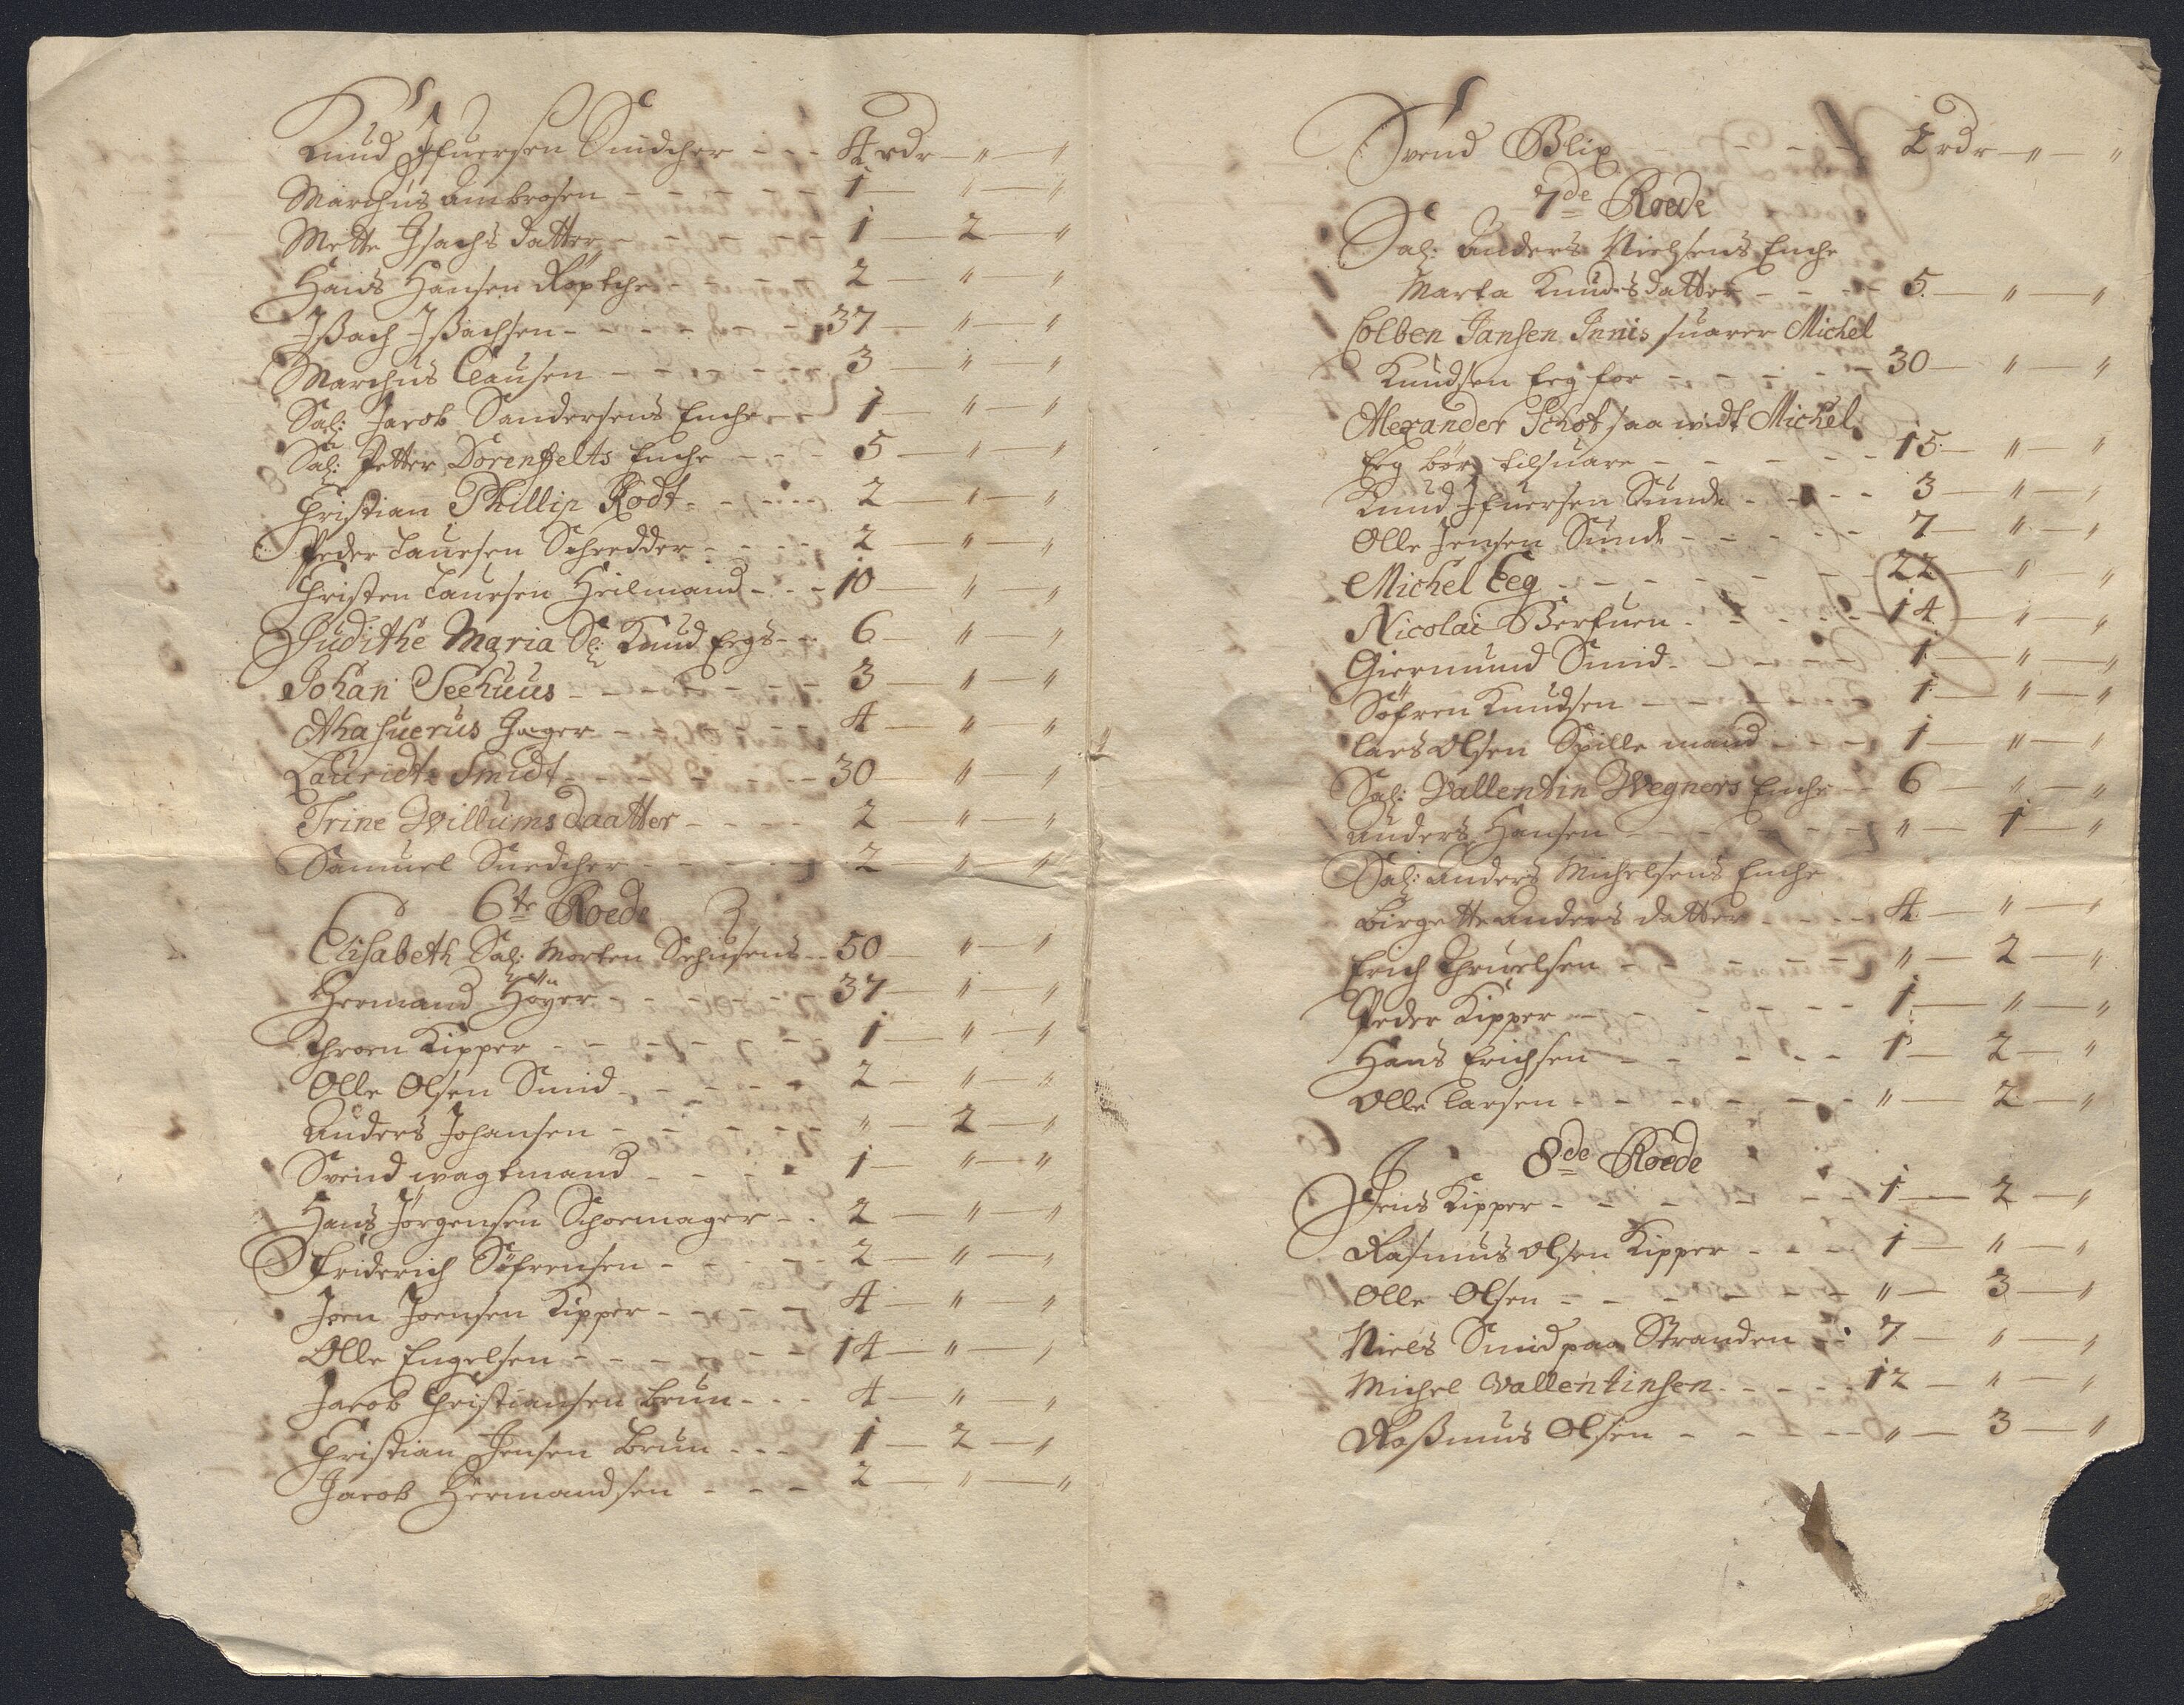 Knud Ifuersen Snidcher - - - 4 rdr — " — "
Marchus Ambrosen - - - - - - 1 — " — "
Mette Isachs datter - - - - - 1 — 2 — "
Hans Hansen - - - 2 — " — "
Jßach Jßachsen - - - - - - 37 — " — "
Marchus Clausen - - - - - - 3 — " — "
Sal: Jacob Sandersens Enche - - 1 — " — "
Sal: Petter Dorenfelts Enche - - - 5 — " — "
Christian Phillip Rodt - - - - - 2 — " — "
Peder Laursen Schredder - - - - 2 — " — "
Christen Laursen Heilmand - - - 10 — " — "
Judithe Maria Sl: Knud Eegs - - 6 — " — "
Johan Seehuus - - - - - - - 3 — " — "
Ahasuerus Jager - - - - - - 4 — " — "
Lauridts Smidt - - - - - - - 30 — " — "
Trine Willums daatter - - - - 2 — " — "
Samuel Snedcher - - - - - - 2 — " — "
6te Roede
Elisabeth Sal: Morten Sehusens - - 50 — " — "
Hermand Høyer - - - - - - 37 — " — "
Throen Kipper - - - - - - - 1 — " — "
Olle Olsen Smid - - - - - 2 — " — "
Anders Johansen - - - - - - " — 2 — "
Svend wagtmand - - - - 1 — " — "
Hans Jörgensen Schoemager - - 2 — " — "
Friderich Söfrensen - - - - - 2 — " — "
Joen Joensen Kipper - - - - - 4 — " — "
Olle Engelsen - - - - - - - 14 — " — "
Jacob Christiansen Brun - - - 4 — " — "
Christian Jensen Brun - - - 1 — 2 — "
Jacob Hermandsen - - - 2 — " — "
Svend Blix - - - - 2 rdr — " — "
7de Roede
Sal: Anders Nielsens Enche
Marta Knuds datter - - - - 5 — " — "
Colben Jansen Innis suarer Michel
Knudsen Eeg for - - - - - - 30 — " — "
Alexander Schot saa widt Michel
Eeg bör tilsuare - - - - - - 15 — " — "
Knud Ifuersen Sunde - - - - 3 — " — "
Olle Jensen Sunde - - - - - 7 — " — "
Michel Eeg - - - - - - - - 22 — " — "
Nicolai Berfuen - - - - - - 14 — " — "
Giermund Smid - - - - - - 1 — " — "
Söfren Knudsen - - - - - - 1 — " — "
Lars Olsen Spillemand - - - - 1 — " — "
Sal: Vallentin Wegners Enche - - 6 — " — "
Anders Hansen - - - - - - - " — 1 — "
Sal: Anders Michelsens Enche
Birgette Anders datter - - - - 4 — " — "
Erich Thruelsen - - - - - - " — 2 — "
Peder Kipper - - - - - - 1 — " — "
Hans Erichsen - - - - - - 1 — 2 — "
Olle Larsen - - - - - - - - " — 2 — "
8de Roede
Jens Kipper - - - - - - 1 — 2 — "
Rasmus Olsen Kipper - - - 1 — " — "
Olle Olsen - - - - - - - " — 3 — "
Niels Smid paa Stranden - - 7 — " — "
Michel Vallentinsen - - - - - 12 — " — "
Raßmus Olsen - - - - - - " — 3 — "